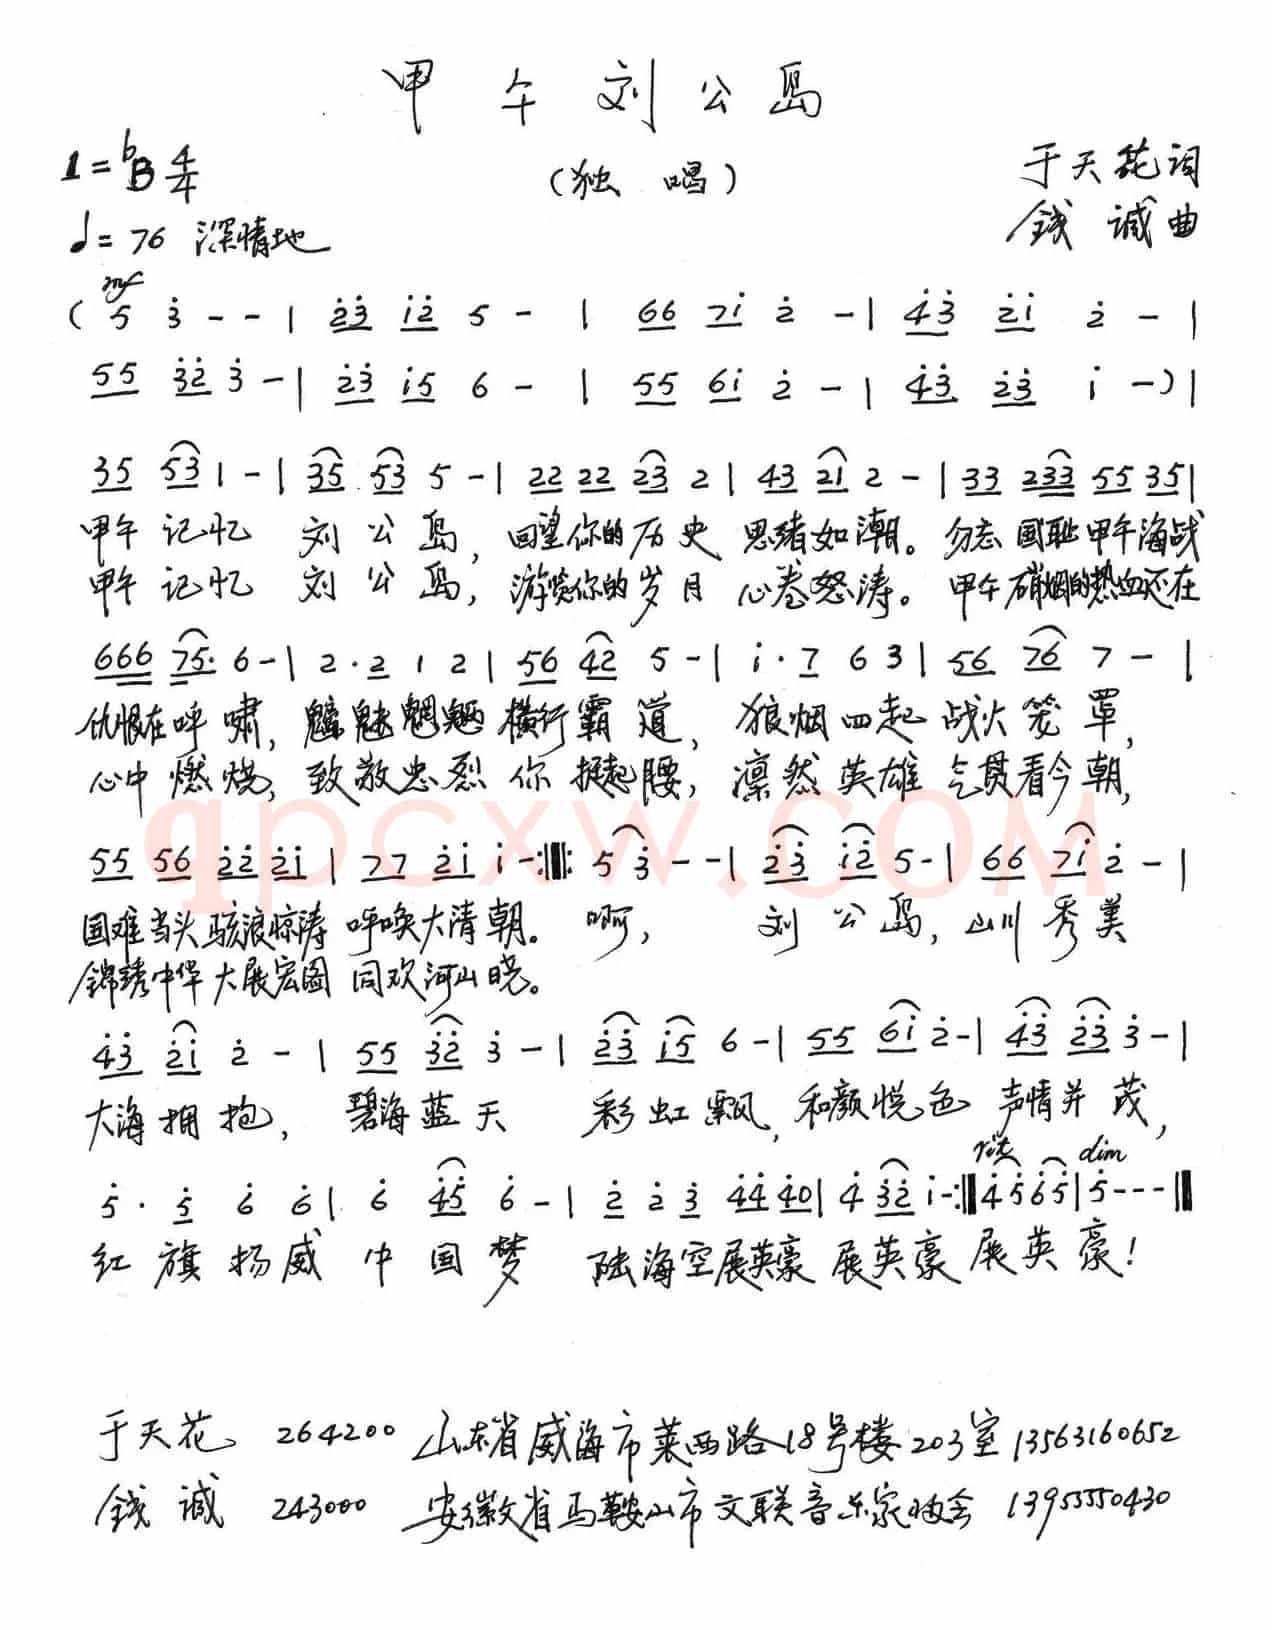 甲午刘公岛
1=♭B 4/4
（独唱）
于天花词
♩=76 深情地
钱诚曲
mf
( 5 3̇ - - | 2̇3̇ 1̇2̇ 5 - | 66 71̇ 2̇ - | 4̇3̇ 2̇1̇ 2̇ - |
55 3̇2̇ 3̇ - | 2̇3̇ 1̇5 6 - | 55 61̇ 2̇ - | 4̇3̇ 2̇3̇ 1̇ - ) |
35 53 1 - | 35 53 5 - | 22 22 23 2 | 43 21 2 - | 33 233 55 35 |
甲午记忆 刘公岛，回望你的历史 思绪如潮。勿忘国耻甲午海战
甲午记忆 刘公岛，游览你的岁月 心卷怒涛。甲午硝烟的热血还在
666 75· 6 - | 2·2 1 2 | 56 42 5 - | 1̇·7 6 3 | 56 76 7 - |
仇恨在呼啸，魑魅魍魉横行霸道，狼烟四起战火笼罩，
心中燃烧，致敬忠烈你挺起腰，凛然英雄气贯看今朝，
qpcxw.com
55 56 2̇2̇ 2̇1̇ | 77 2̇1̇ 1̇ - :‖: 5 3̇ - - | 2̇3̇ 1̇2̇ 5 - | 66 71̇ 2̇ - |
国难当头骇浪惊涛 呼唤大清朝。啊， 刘公岛，山川秀美
锦绣中华大展宏图 同欢河山晓。
4̇3̇ 2̇1̇ 2̇ - | 55 3̇2̇ 3̇ - | 2̇3̇ 1̇5 6 - | 55 61̇ 2̇ - | 4̇3̇ 2̇3̇ 3̇ - |
大海拥抱，碧海蓝天 彩虹飘，和颜悦色 声情并茂，
rit dim
5̇·5̇ 6̇ 6̇ | 6̇ 4̇5̇ 6̇ - | 2̇ 2̇ 3̇ 4̇4̇ 4̇0 | 4̇ 3̇2̇ 1̇ - :‖ 4̇ 5̇ 6̇ 5̇ | 5̇ - - - ‖
红旗扬威中国梦 陆海空展英豪 展英豪 展英豪！
于天花 264200 山东省威海市莱西路18号楼203室 13563160652
钱诚 243000 安徽省马鞍山市文联音乐家协会 13955550430